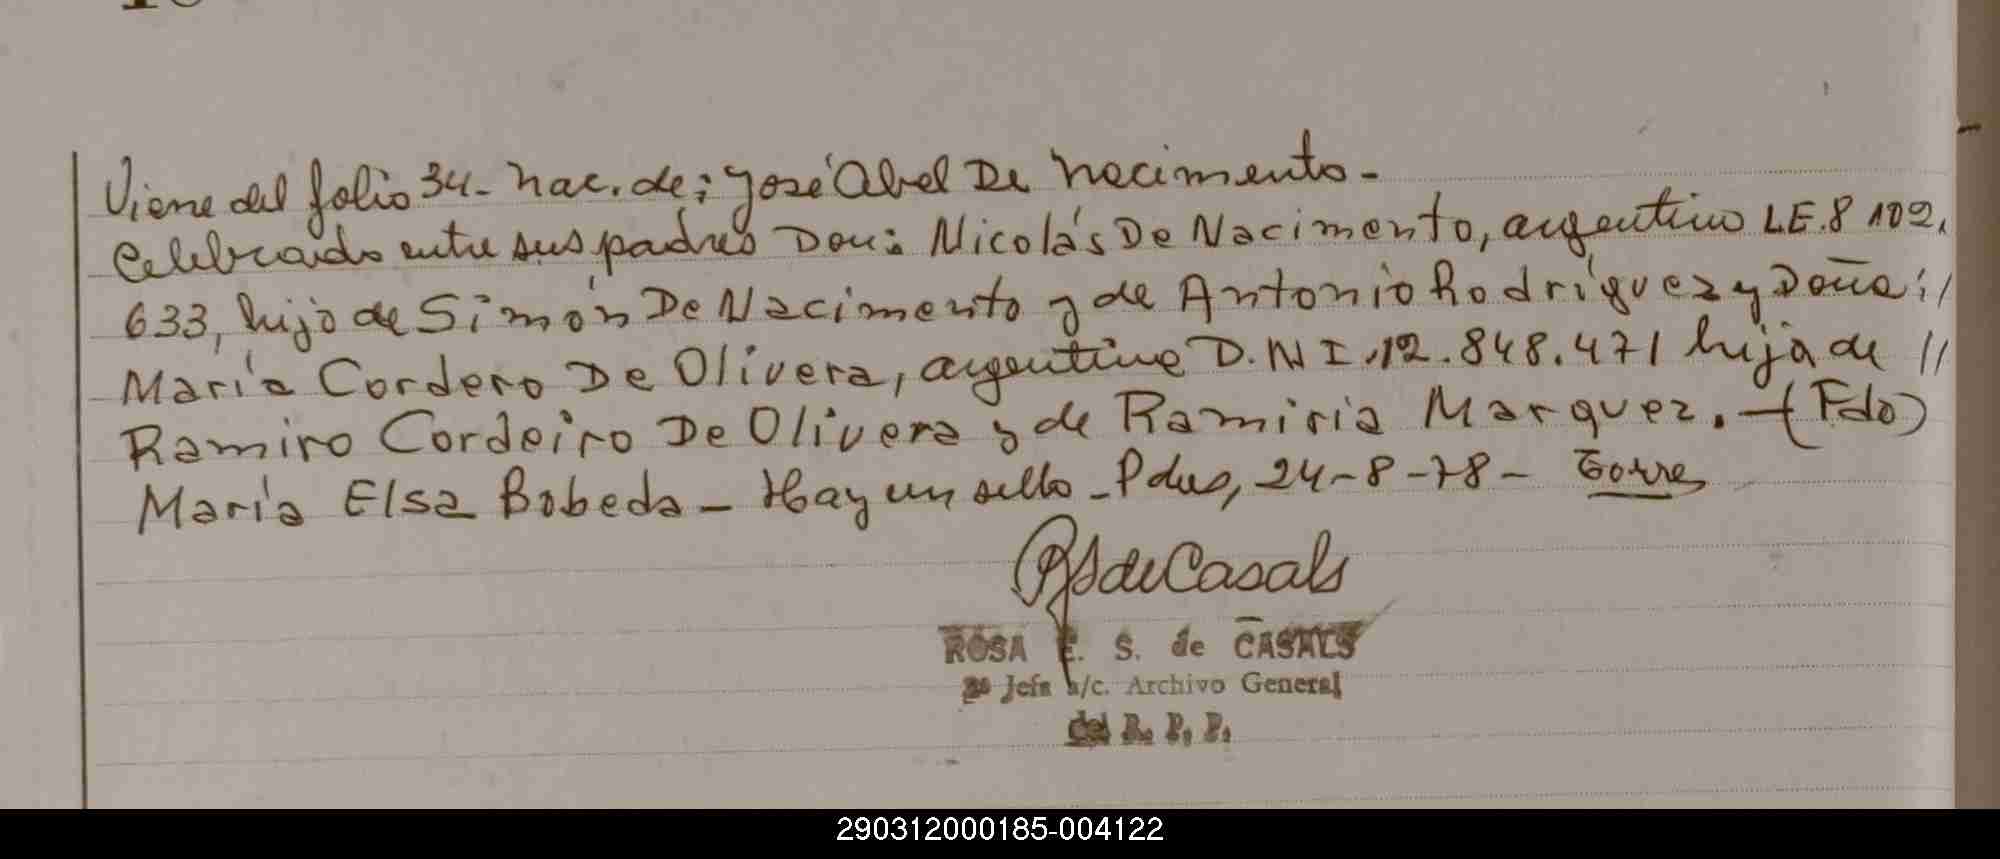 Viene del folio 34- nac. de; José Abel De Nacimento-
Celebrado entre sus padres Don: Nicolás De Nacimento, argentino L.E. 8 102.
633, hijo de Simón De Nacimento y de Antonio Rodríguez y Doña: //
María Cordero De Olivera, argentina D.N.I. 12.848.471 hija de //
Ramiro Cordeiro De Olivera y de Ramiria Marquez. - (Fdo)
María Elsa Bobeda - Hay un sello - Pdas, 24-8-78- Torres
RS de Casals
ROSA E. S. de CASALS
2ª Jefa a/c. Archivo General
del R. P. P.
290312000185-004122